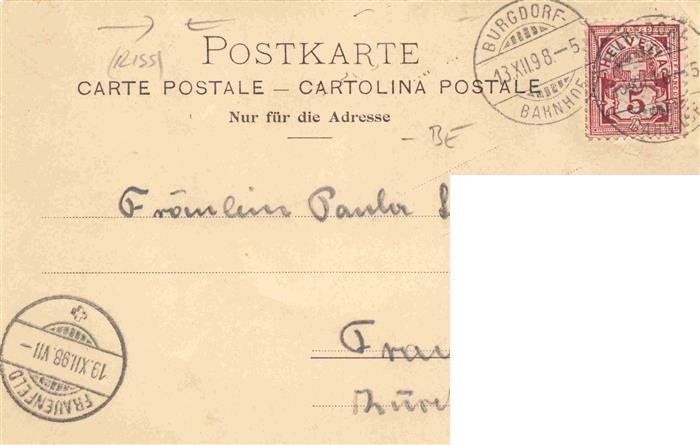 (RISS)
POSTKARTE
CARTE POSTALE – CARTOLINA POSTALE
Nur für die Adresse
BURGDORF-
13.XII.98–5
BAHNHOF
HELVETIA
5
– BE
Fräulein Paula
FRAUENFELD
13.XII.98.VII–